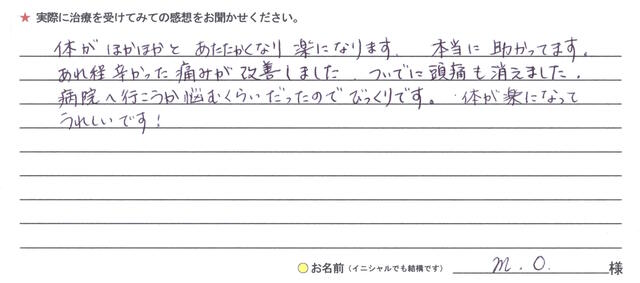 ★ 実際に治療を受けてみての感想をお聞かせください。
体が ほかほかと あたたかくなり 楽になります. 本当に 助かってます.
あれ程 辛かった 痛みが 改善しました. ついでに 頭痛も 消えました.
病院へ行こうか悩むくらいだったので びっくりです。 体が楽になって
うれしいです!
お名前(イニシャルでも結構です) M.O. 様